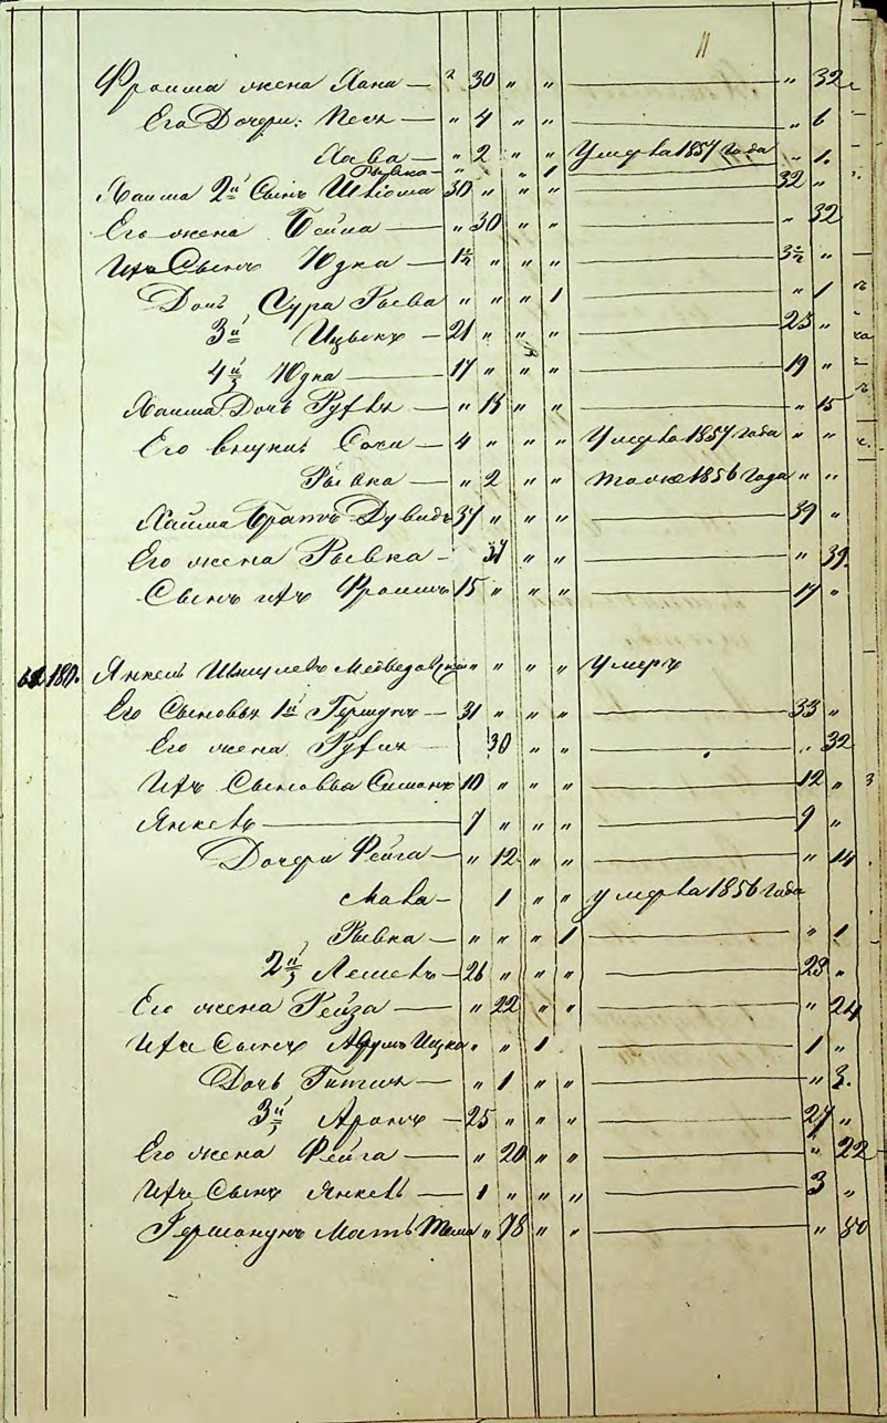 11
Фроима жена Хана — " 30 " " — " 32
Его Дочери: Песя — " 4 " " — " 6
Хава — " 2 " " Умерла 1857 года " 1.
Рывка — " " " 1
Хаима 2й Сынъ Шліома 30 " " " — 32 "
Его жена Бейла — " 30 " " — " 32
Ихъ Сынъ Юдка — 1½ " " " — 3½ "
Дочь Сура Рыва " " " 1 — " 1
3й Ицыкъ — 21 " " " — 23 "
4й Юдка — 17 " " " — 19 "
Хаима Дочь Рухля — " 13 " " — " 15
Его внуки — 4 " " " Умерла 1857 года " "
Рывка — " 2 " " тоже 1856 года " "
Хайма Братъ Дувидъ 37 " " " — 39 "
Его жена Рывка — 37 " " — " 39.
Сынъ ихъ Фроимъ 15 " " " — 17 "
180. Янкель Шмулевъ Медведовский " " " " Умеръ
Его Сыновья 1й Гершунъ — 31 " " " — 33 "
Его жена Рухля — 30 " " — " 32
Ихъ Сыновья Симонъ 10 " " " — 12 "
Янкель — 7 " " " — 9 "
Дочери Фейга — " 12 " " — " 14
Хава — 1 " " умерла 1856 года
Рывка — " " " 1 — " 1
2й Лейзеръ — 26 " " " — 28 "
Его жена Рейза — " 22 " " — " 24
Ихъ Сынъ Ицка " " 1 — 1 "
Дочь Гитля — " 1 " " — " 3.
3й Аронъ — 25 " " " — 27 "
Его жена Фейга — " 20 " " — " 22
Ихъ Сынъ Янкель — 1 " " " — 3 "
Мать " 78 " " — " 80